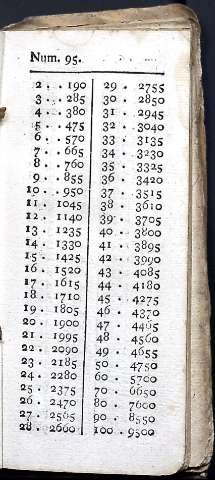 Num. 95.
2 . . 190
3 . . 285
4 . . 380
5 . . 475
6 . . 570
7 . . 665
8 . . 760
9 . . 855
10 . . 950
11 . 1045
12 . 1140
13 . 1235
14 . 1330
15 . 1425
16 . 1520
17 . 1615
18 . 1710
19 . 1805
20 . 1900
21 . 1995
22 . 2090
23 . 2185
24 . 2280
25 . 2375
26 . 2470
27 . 2565
28 . 2660
29 . 2755
30 . 2850
31 . 2945
32 . 3040
33 . 3135
34 . 3230
35 . 3325
36 . 3420
37 . 3515
38 . 3610
39 . 3705
40 . 3800
41 . 3895
42 . 3990
43 . 4085
44 . 4180
45 . 4275
46 . 4370
47 . 4465
48 . 4560
49 . 4655
50 . 4750
60 . 5700
70 . 6650
80 . 7600
90 . 8550
100 . 9500